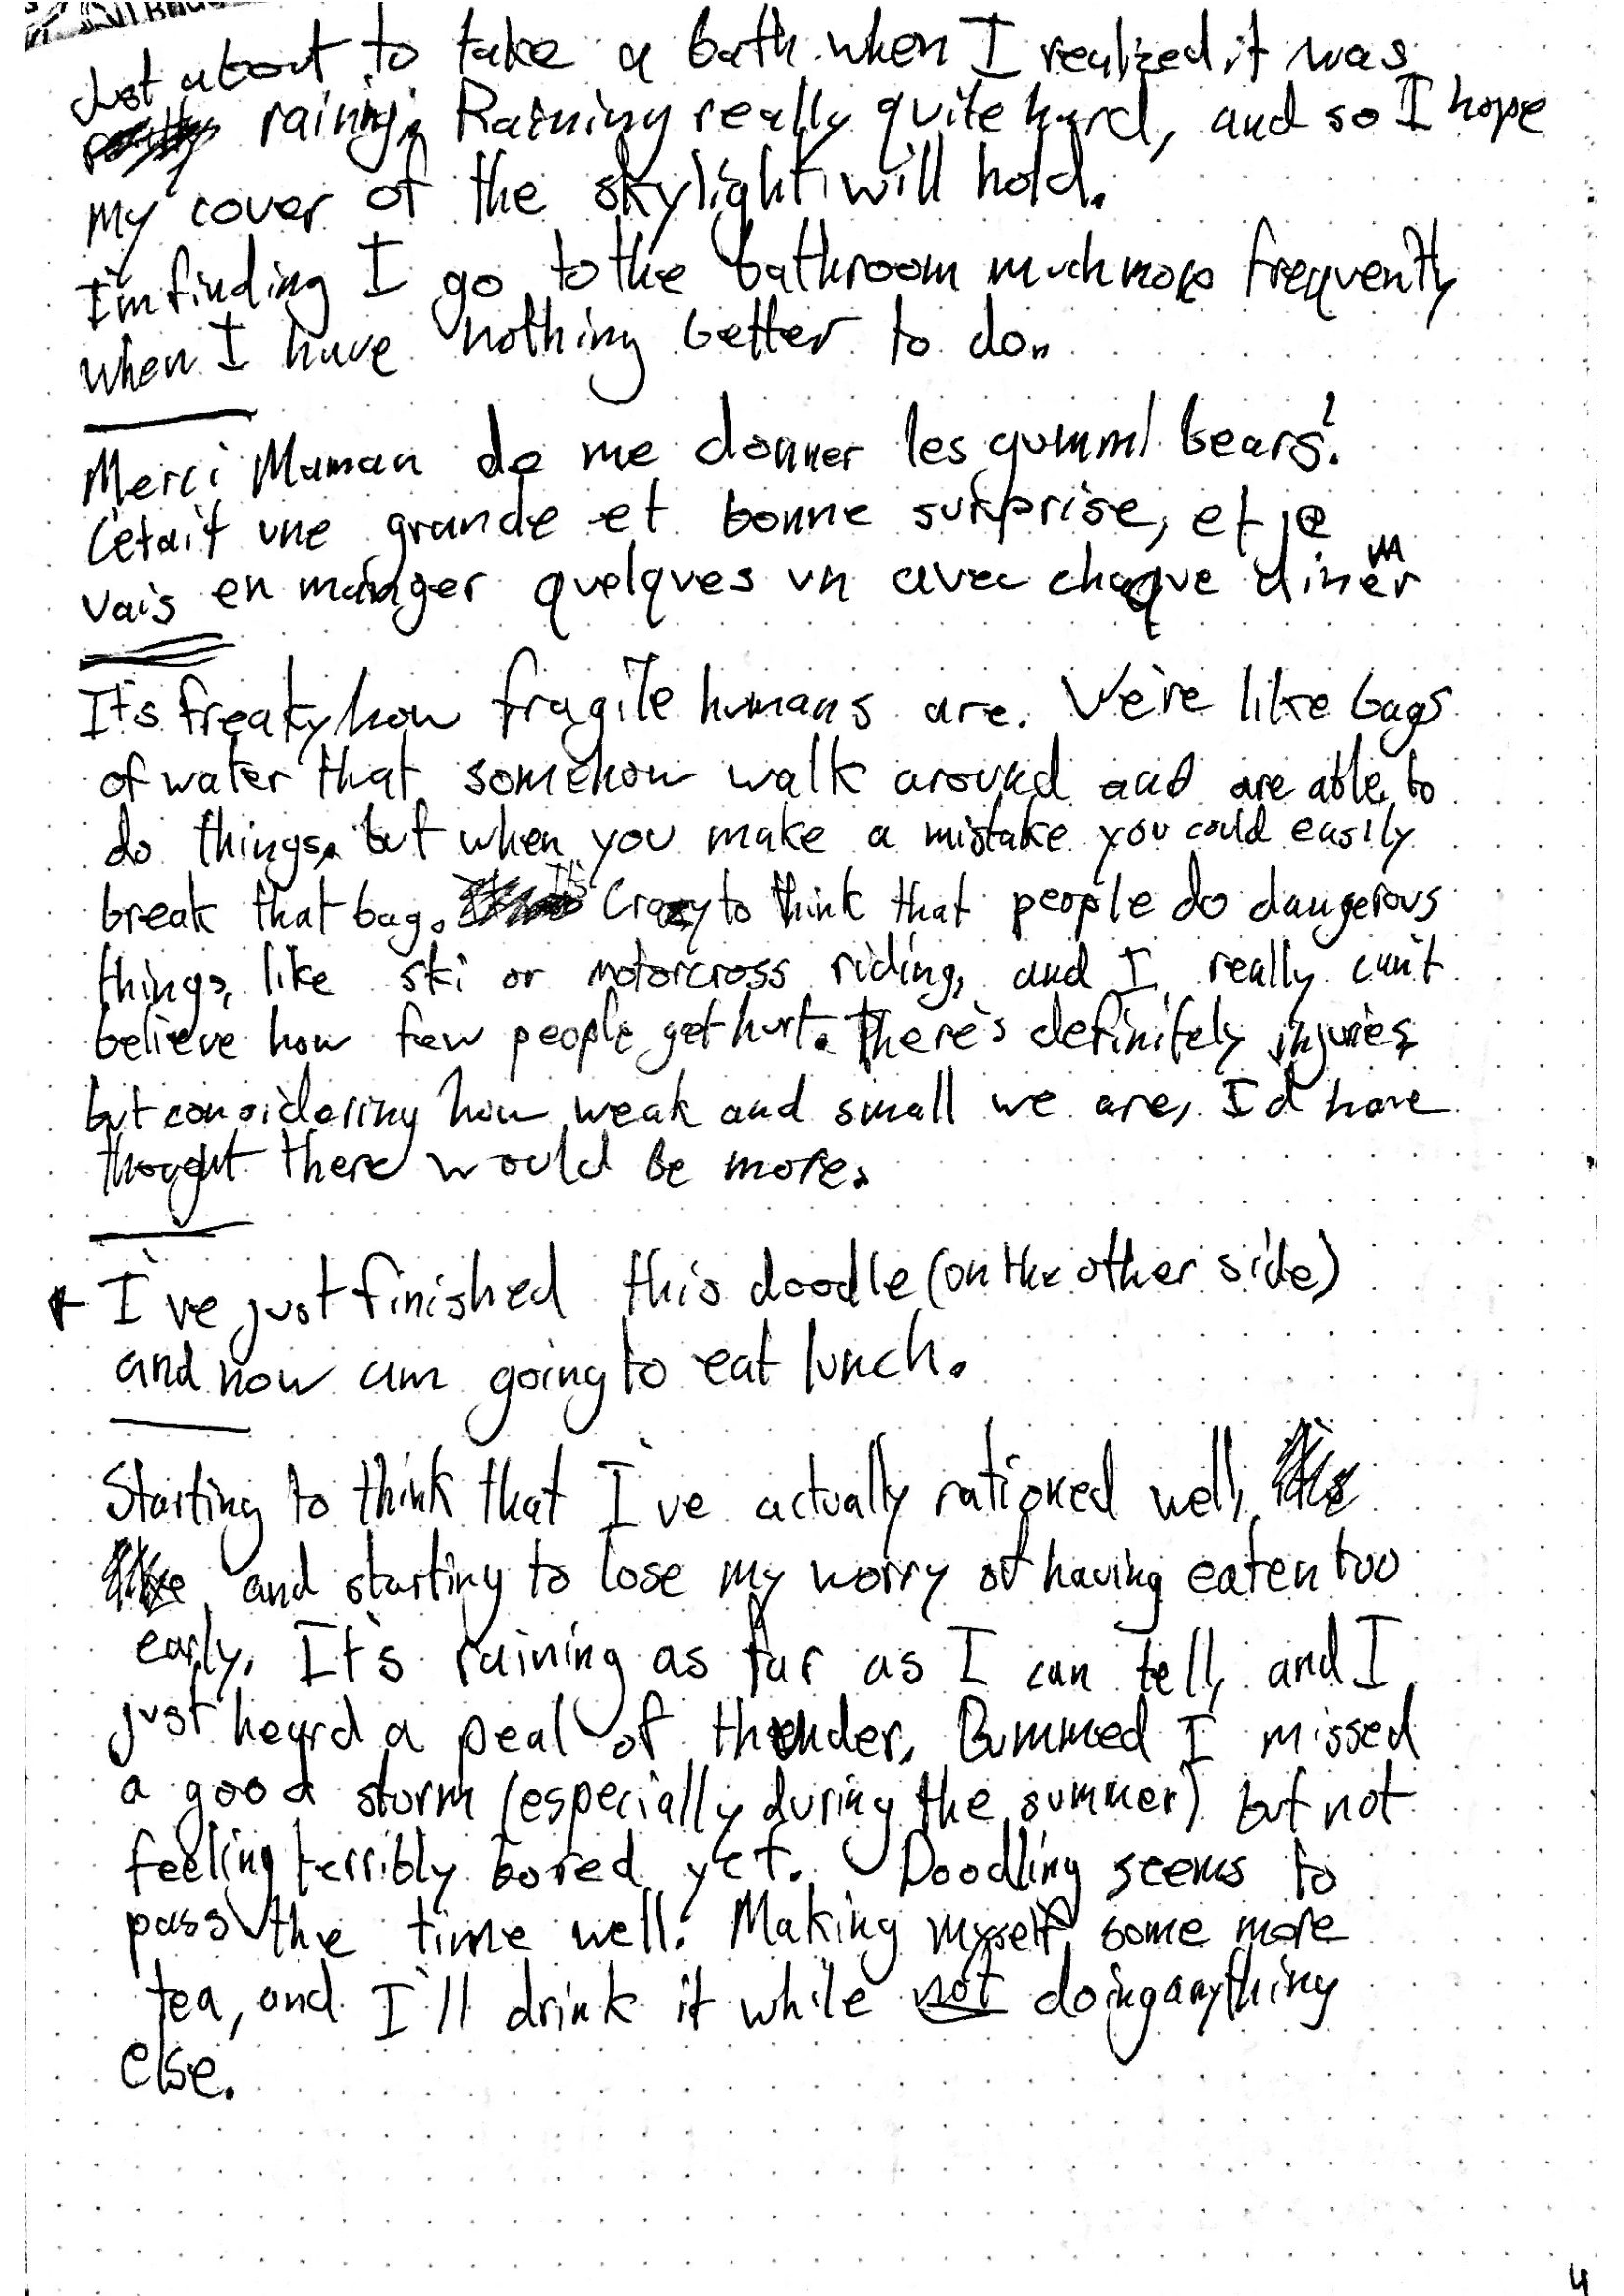 Just about to take a bath when I realized it was
raining. Raining really quite hard, and so I hope
my cover of the skylight will hold.
I'm finding I go to the bathroom much more frequently
when I have nothing better to do.
Merci Maman de me donner les gummi bears!
C'était une grande et bonne surprise, et je
vais en manger quelques un avec chaque diner
It's freaky how fragile humans are. We're like bags
of water that somehow walk around and are able to
do things, but when you make a mistake you could easily
break that bag. It's Crazy to think that people do dangerous
things, like ski or motorcross riding, and I really can't
believe how few people get hurt. There's definitely injuries
but considering how weak and small we are, I'd have
thought there would be more.
I've just finished this doodle (on the other side)
and now am going to eat lunch.
Starting to think that I've actually rationed well,
and starting to lose my worry of having eaten too
early. It's raining as far as I can tell, and I
just heard a peal of thunder. Bummed I missed
a good storm (especially during the summer) but not
feeling terribly bored yet. Doodling seems to
pass the time well. Making myself some more
tea, and I'll drink it while not doing anything
else.
4